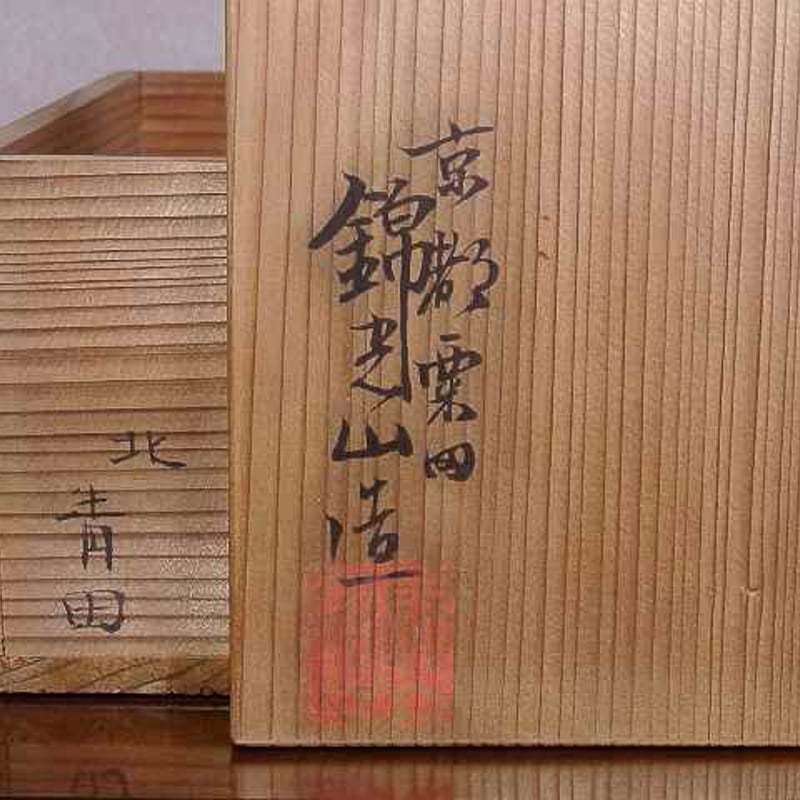 京都粟田
錦光山造
北
青田